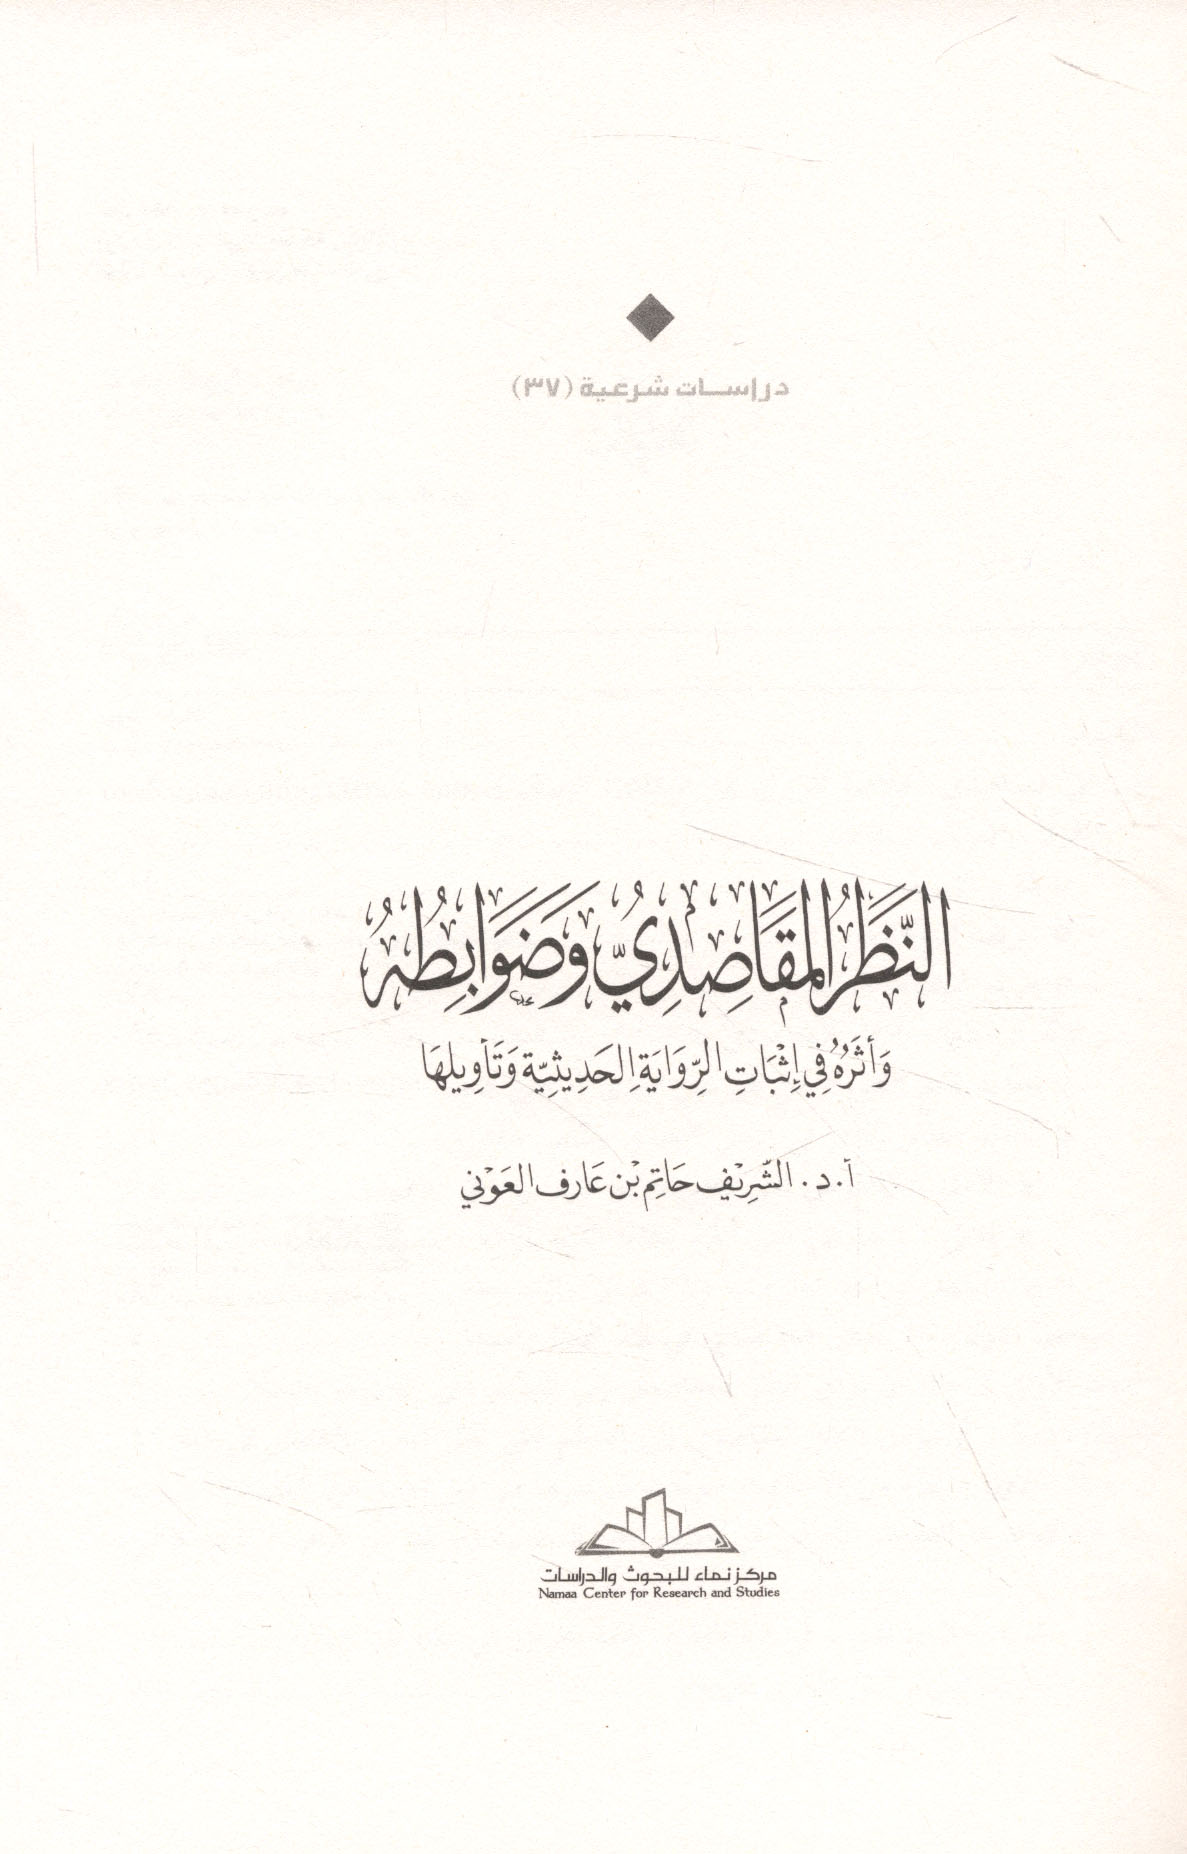 دراسات شرعية (٣٧)
النَّظَرُ المَقَاصِدِيُّ وَضَوَابِطُهُ
وَأَثَرُهُ فِي إِثْبَاتِ الرِّوَايَةِ الحَدِيثِيَّة وَتَأوِيلِهَا
أ.د. الشَّرِيْف حَاتِم بْن عَارِف العَوْنِي
مركز نماء للبحوث والدراسات
Namaa Center for Research and Studies